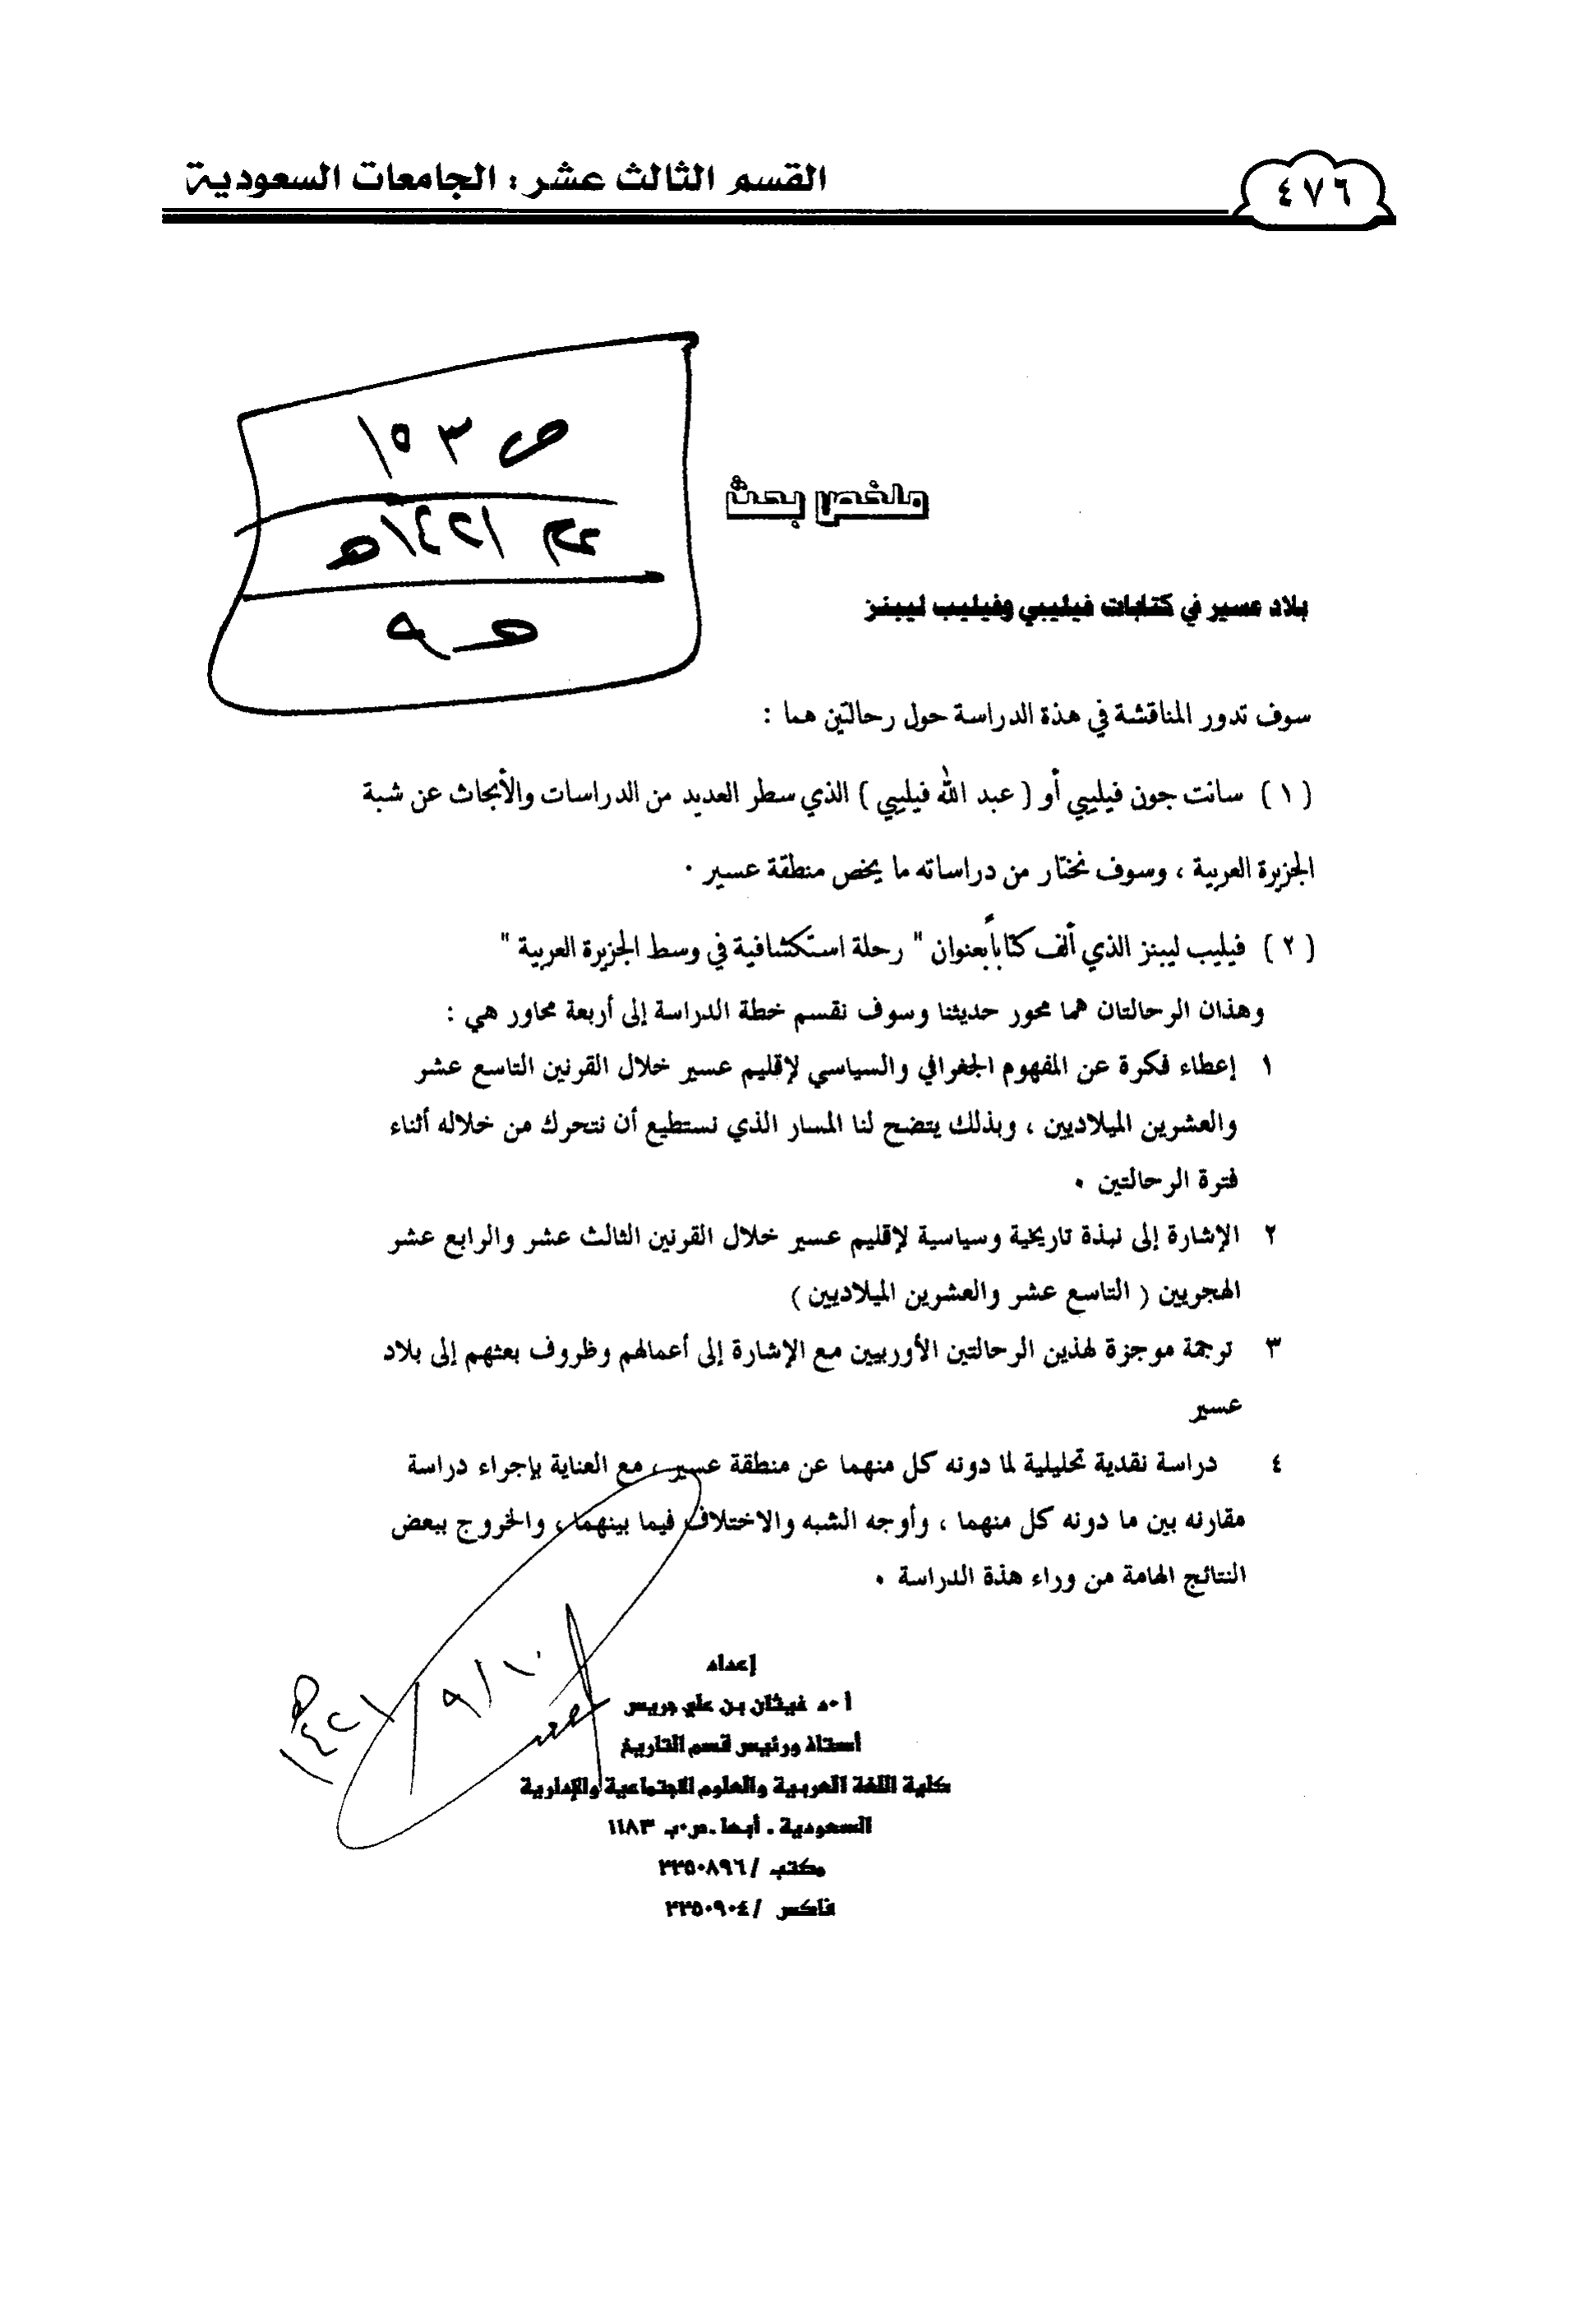 القسم الثالث عشر : الجامعات السعودية
٤٧٦
ص ١٥٣
١٤٢١هـ
ملخص بحث
بلاد عسير في كتابات فيليبي وفيليب ليبنز
سوف تدور المناقشة في هذة الدراسة حول رحالتين هما :
( ١ ) سانت جون فيليبي أو ( عبد الله فيليبي ) الذي سطر العديد من الدراسات والأبحاث عن شبة
الجزيرة العربية ، وسوف نختار من دراساته ما يخص منطقة عسير ٠
( ٢ ) فيليب ليبنز الذي ألف كتاباً بعنوان " رحلة استكشافية في وسط الجزيرة العربية "
وهذان الرحالتان هما محور حديثنا وسوف نقسم خطة الدراسة إلى أربعة محاور هي :
١ إعطاء فكرة عن المفهوم الجغرافي والسياسي لإقليم عسير خلال القرنين التاسع عشر
والعشرين الميلاديين ، وبذلك يتضح لنا المسار الذي نستطيع أن نتحرك من خلاله أثناء
فترة الرحالتين ٠
٢ الإشارة إلى نبذة تاريخية وسياسية لإقليم عسير خلال القرنين الثالث عشر والرابع عشر
الهجريين ( التاسع عشر والعشرين الميلاديين )
٣ ترجمة موجزة لهذين الرحالتين الأوربيين مع الإشارة إلى أعمالهم وظروف بعثهم إلى بلاد
عسير
٤ دراسة نقدية تحليلية لما دونه كل منهما عن منطقة عسير ، مع العناية بإجراء دراسة
مقارنه بين ما دونه كل منهما ، وأوجه الشبه والاختلاف فيما بينهما ، والخروج ببعض
النتائج الهامة من وراء هذة الدراسة ٠
إعداد
أ ٠ د غيثان بن علي جريس
أستاذ ورئيس قسم التاريخ
كلية اللغة العربية والعلوم الاجتماعية والإدارية
السعودية ـ أبها ـ ص٠ب ١١٨٣
مكتب / ٢٢٥٠٨٩٦
فاكس / ٢٢٥٠٩٠٤
١٠/٩/١٤٢١هـ